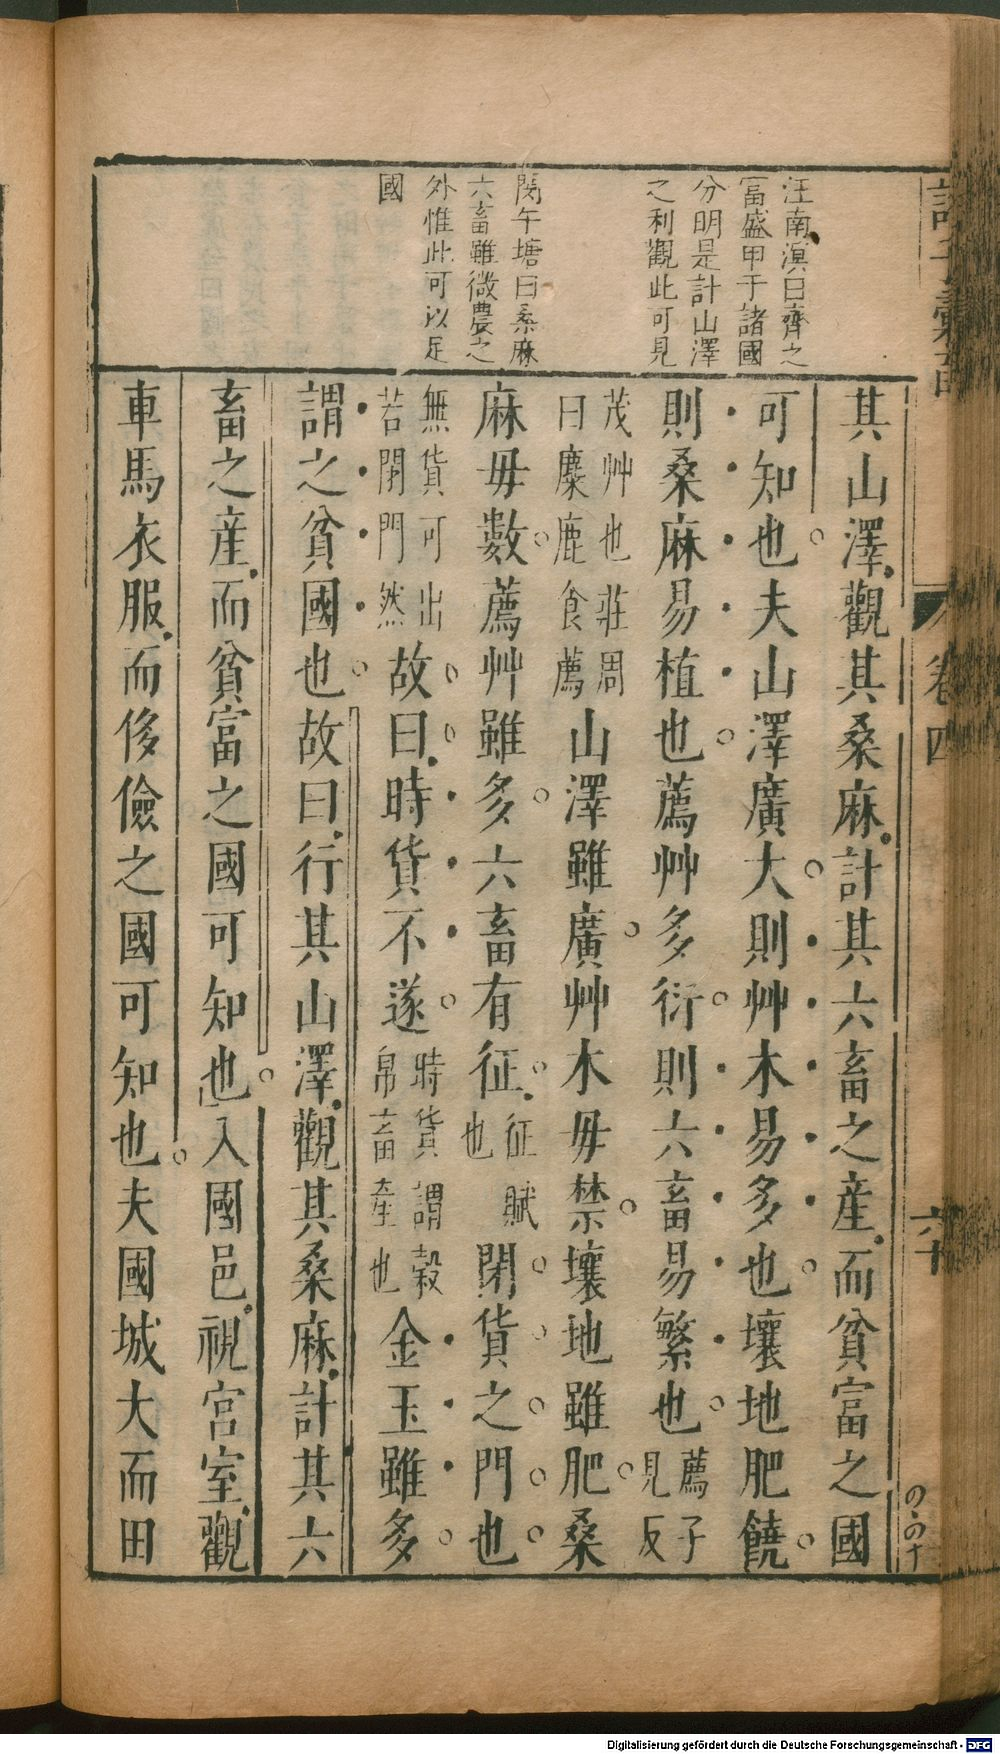 汪南溟曰齊之
富盛甲于諸國
分明是計山澤
之利觀此可見
閔午塘曰桑麻
六畜雖微農之
外惟此可以足
國
其山澤觀其桑麻計其六畜之產而貧富之國
可知也夫山澤廣大則艸木易多也壤地肥饒
則桑麻易植也薦艸多衍則六畜易繁也薦子見反
茂艸也莊周曰麋鹿食薦山澤雖廣艸木毋禁壤地雖肥桑
麻毋數薦艸雖多六畜有征征賦也閉貨之門也
無貨可出若閉門然故曰時貨不遂時貨謂穀帛畜產也金玉雖多
謂之貧國也故曰行其山澤觀其桑麻計其六
畜之產而貧富之國可知也入國邑視宮室觀
車馬衣服而侈儉之國可知也夫國城大而田
卷四
六十
Digitalisierung gefördert durch die Deutsche Forschungsgemeinschaft - DFG